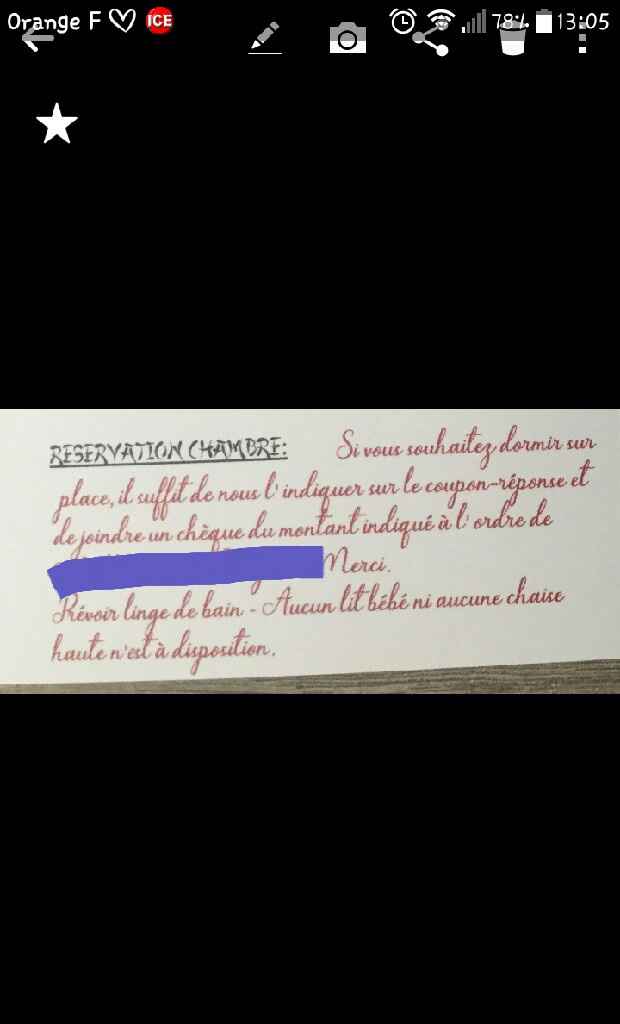 Orange F ICE 78% 13:05
RESERVATION CHAMBRE: Si vous souhaitez dormir sur
place, il suffit de nous l'indiquer sur le coupon-réponse et
de joindre un chèque du montant indiqué à l'ordre de
Merci.
Prévoir linge de bain - Aucun lit bébé ni aucune chaise
haute n'est à disposition.